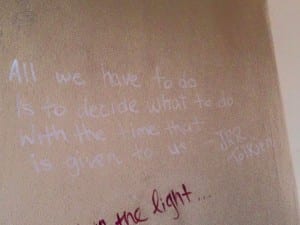 All we have to do
Is to decide what to do
With the time that
is given to us - JRR
Tolkien
the light...